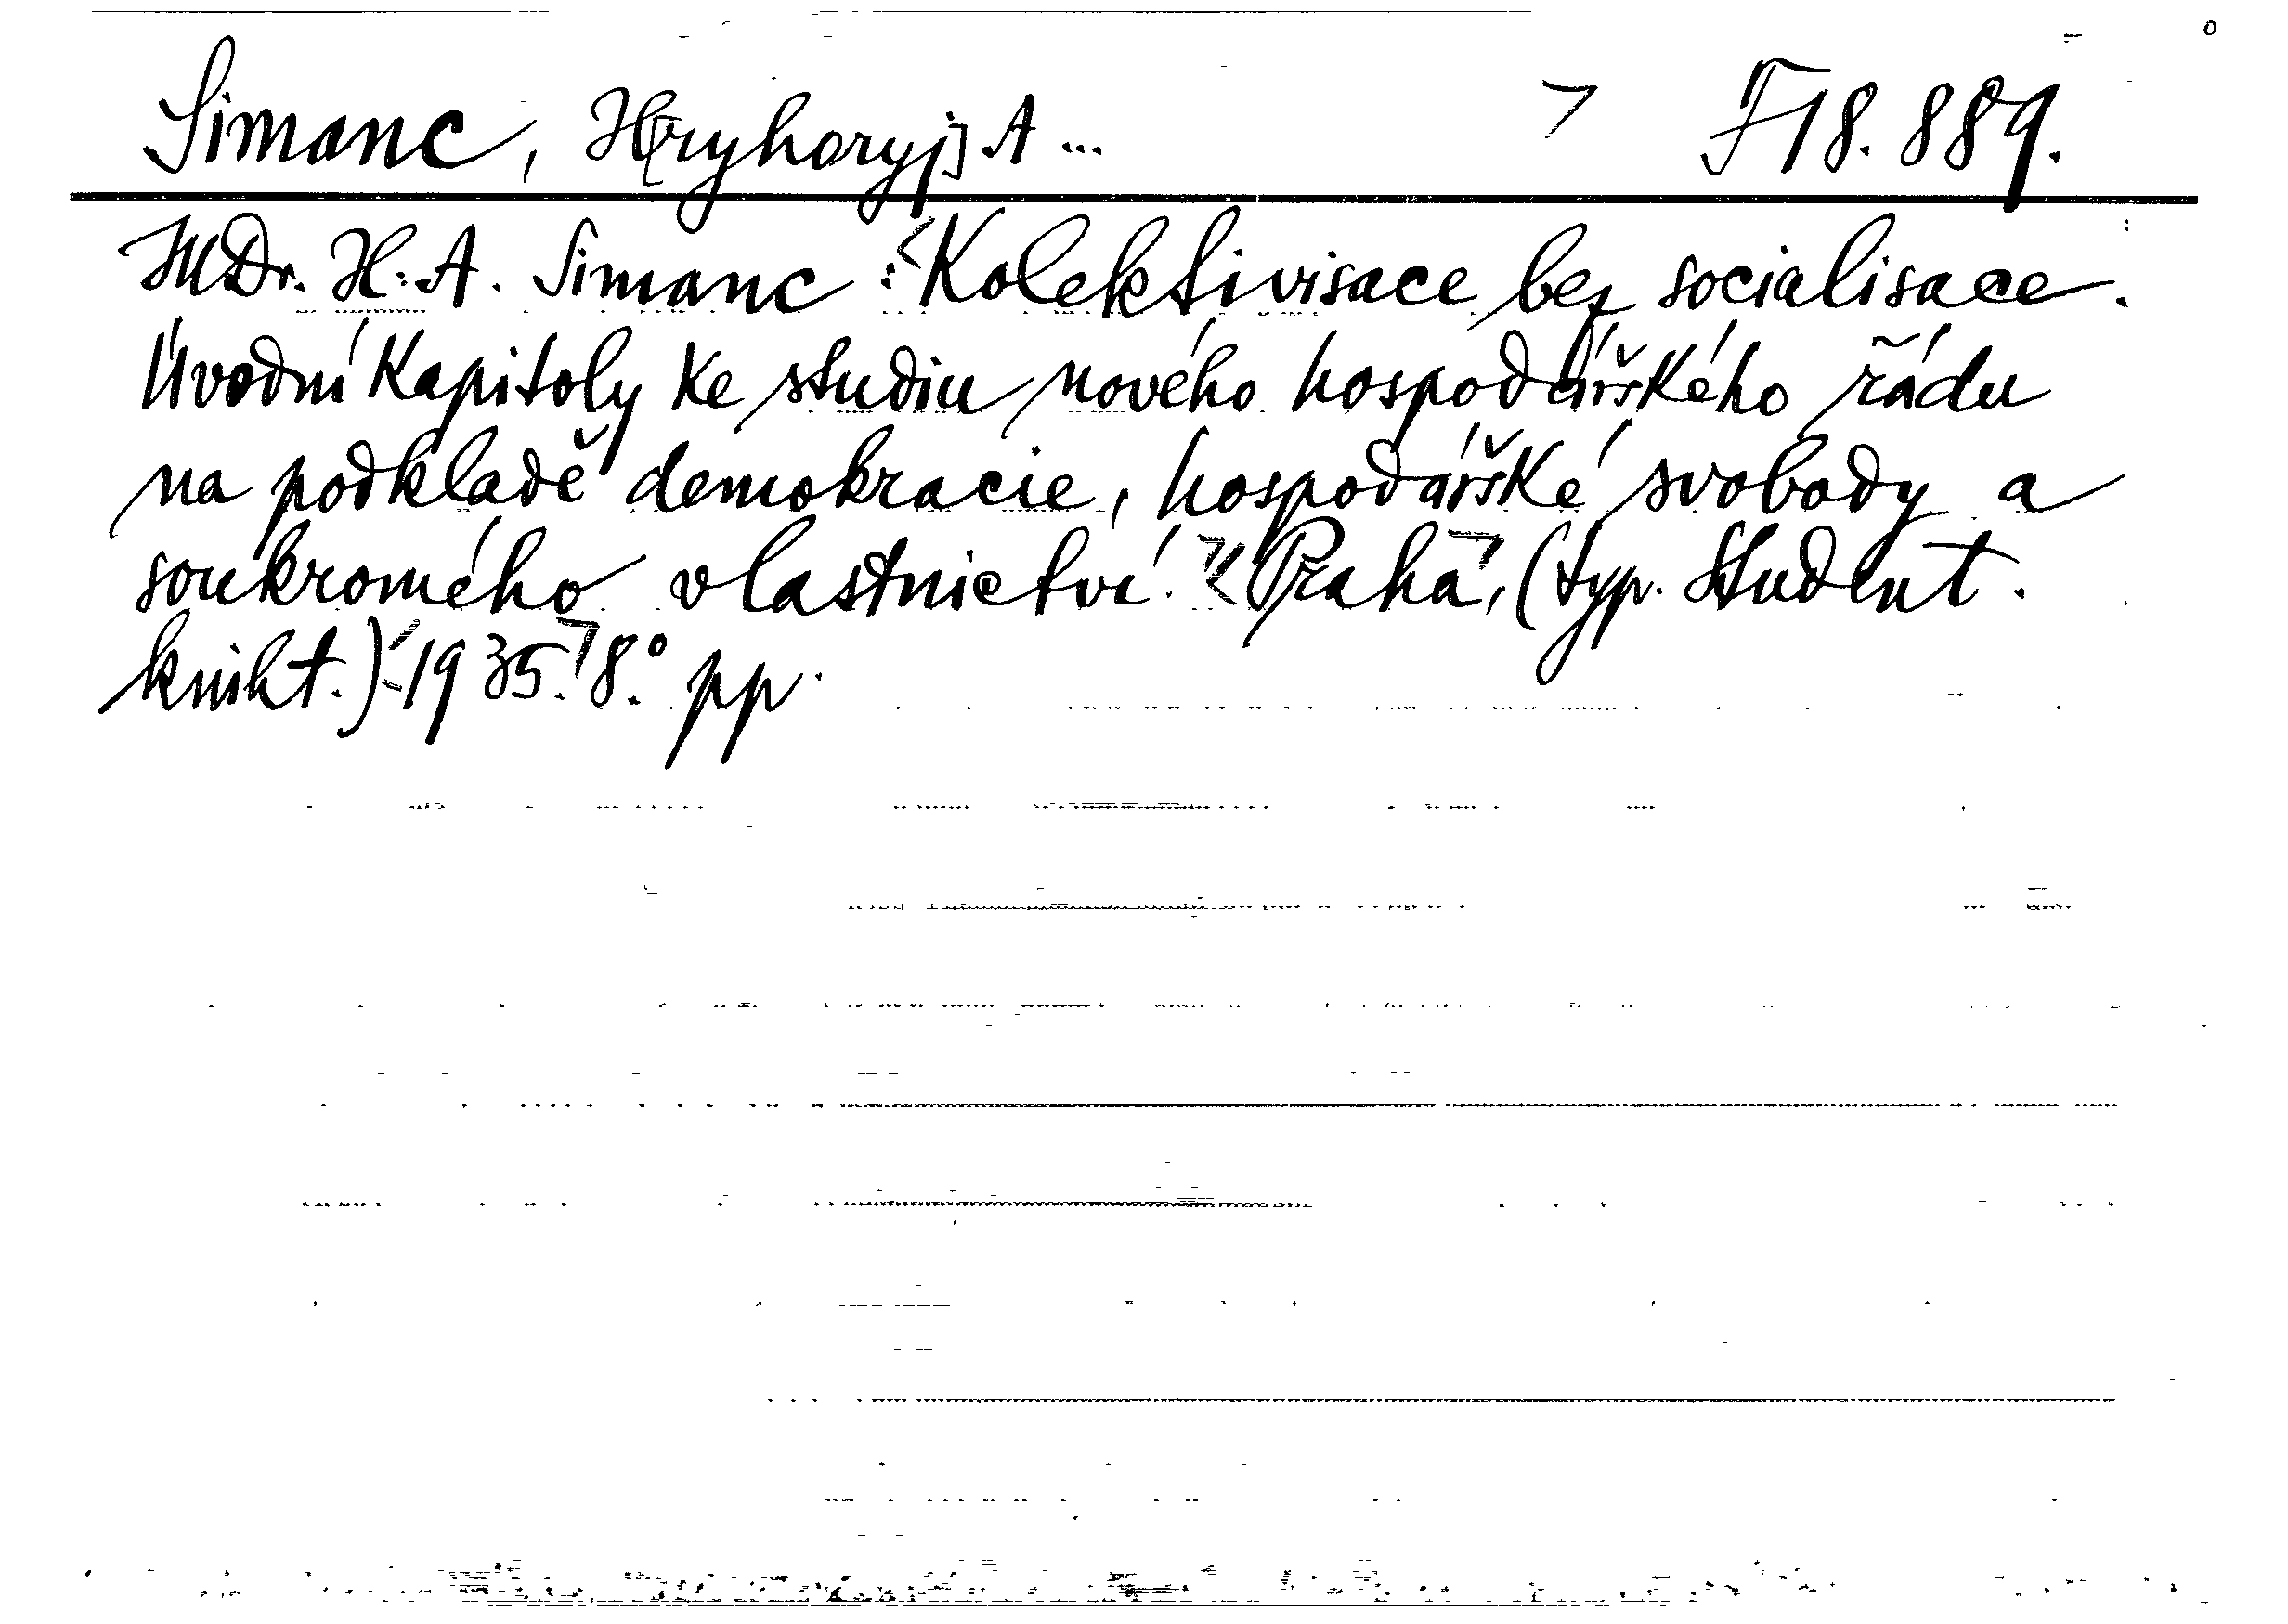 Simanc, H[ryhoryj] A... F 18.889.
MDr. H. A. Simanc : Kolektivisace bez socialisace.
Úvodní kapitoly ke studiu nového hospodářského řádu
na podkladě demokracie, hospodářské svobody a
soukromého vlastnictví. Praha, (typ. Student.
kniht.) 1935. 8.° pp.